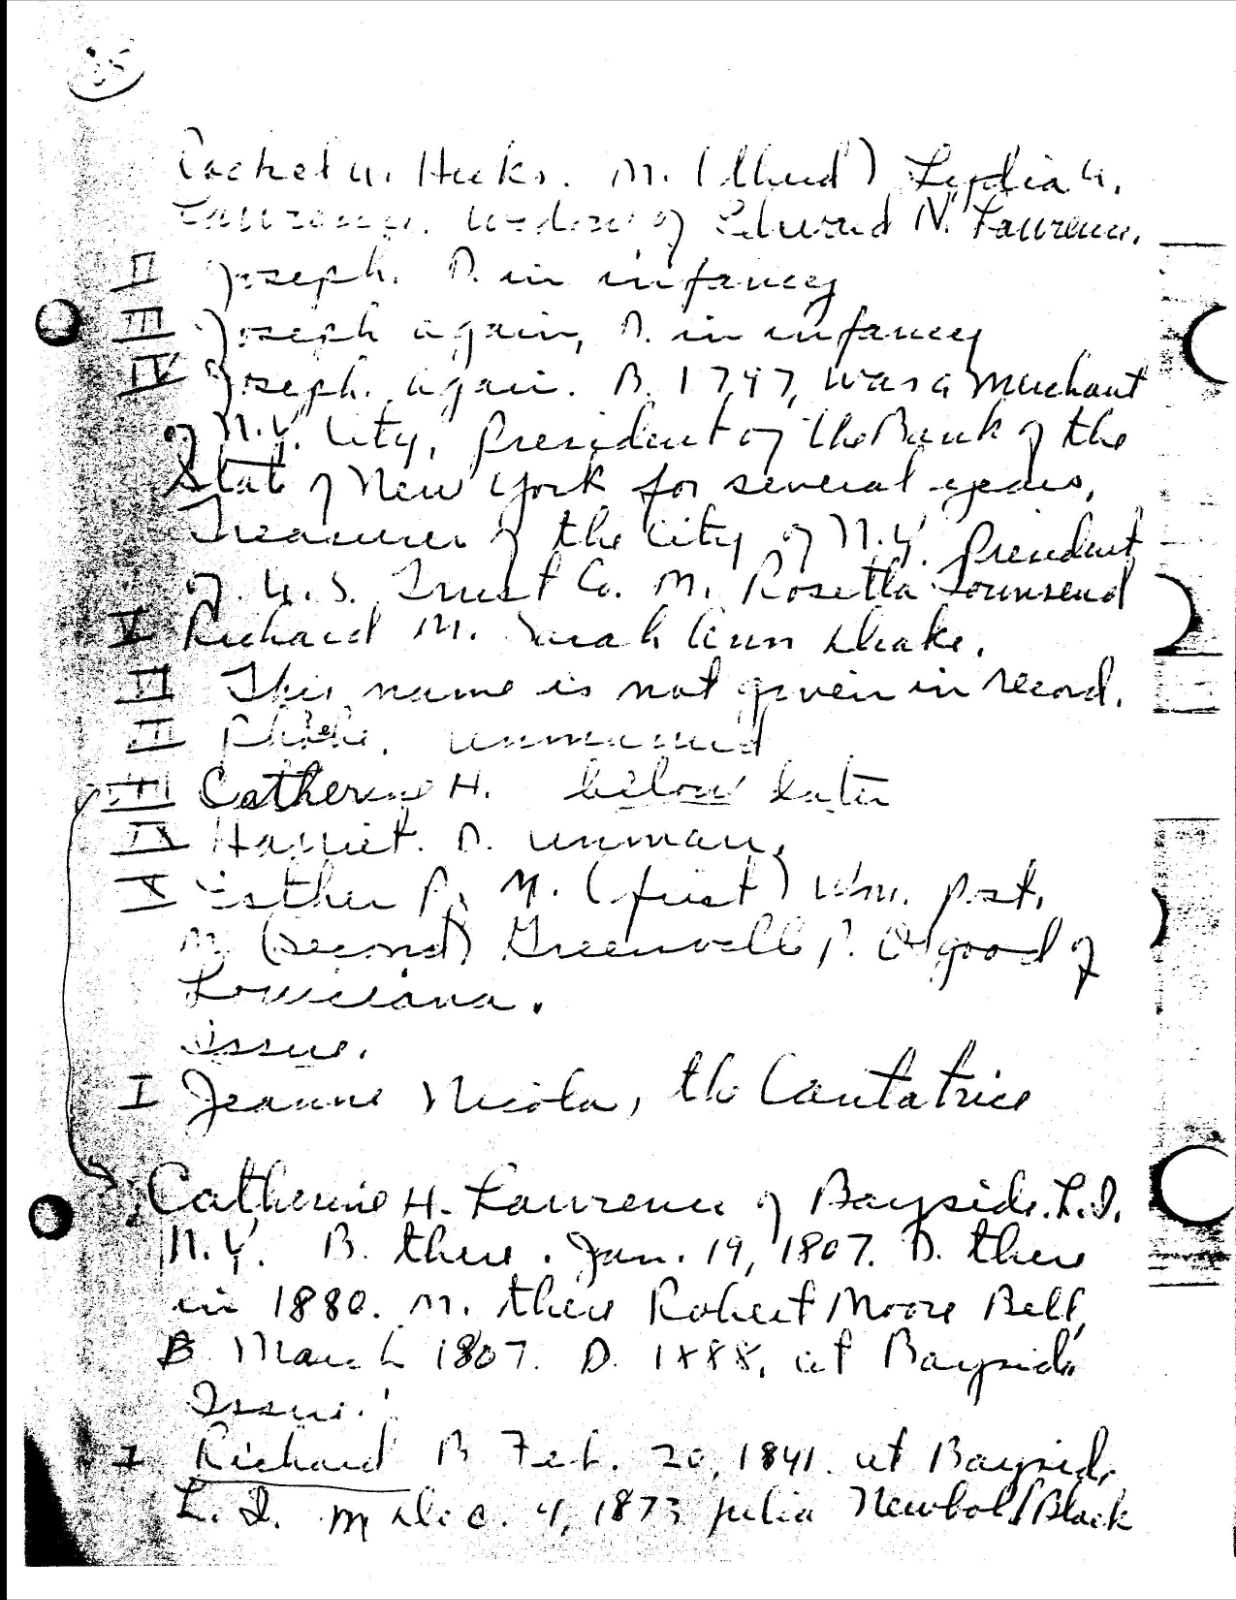 Hicks. M. (third) Lydia
Laurence. widow of Edward N. Laurence.
II Joseph. D. in infancy
III Joseph again, D. in infancy
IV Joseph. again. B. 1797, was a merchant
of N.Y. City, President of the Bank of the
State of New York for several years,
Treasurer of the City of N.Y. President
of U.S. Trust Co. M. Rosetta Townsend
V Richard M. Sarah Ann Drake.
VI This name is not given in record.
VII Phebe. unmarried
VIII Catherine H. below later
IX Harriet. D. unmar.
X Esther P. M. (first) Wm. Post.
M (second) Greenvelle P. Osgood of
Louisiana.
issue.
I Jeanne Nicola, the Cantatrice
Catherine H. Laurence of Bayside. L.I.
N.Y. B. there. Jan. 19, 1807. D. there
in 1880. M. there Robert Moore Bell,
B March 1807. D. 1888, at Bayside
Issue.
I Richard B Feb. 20, 1841. at Bayside,
L.I. M Dec. 4, 1873 Julia Newbold Black